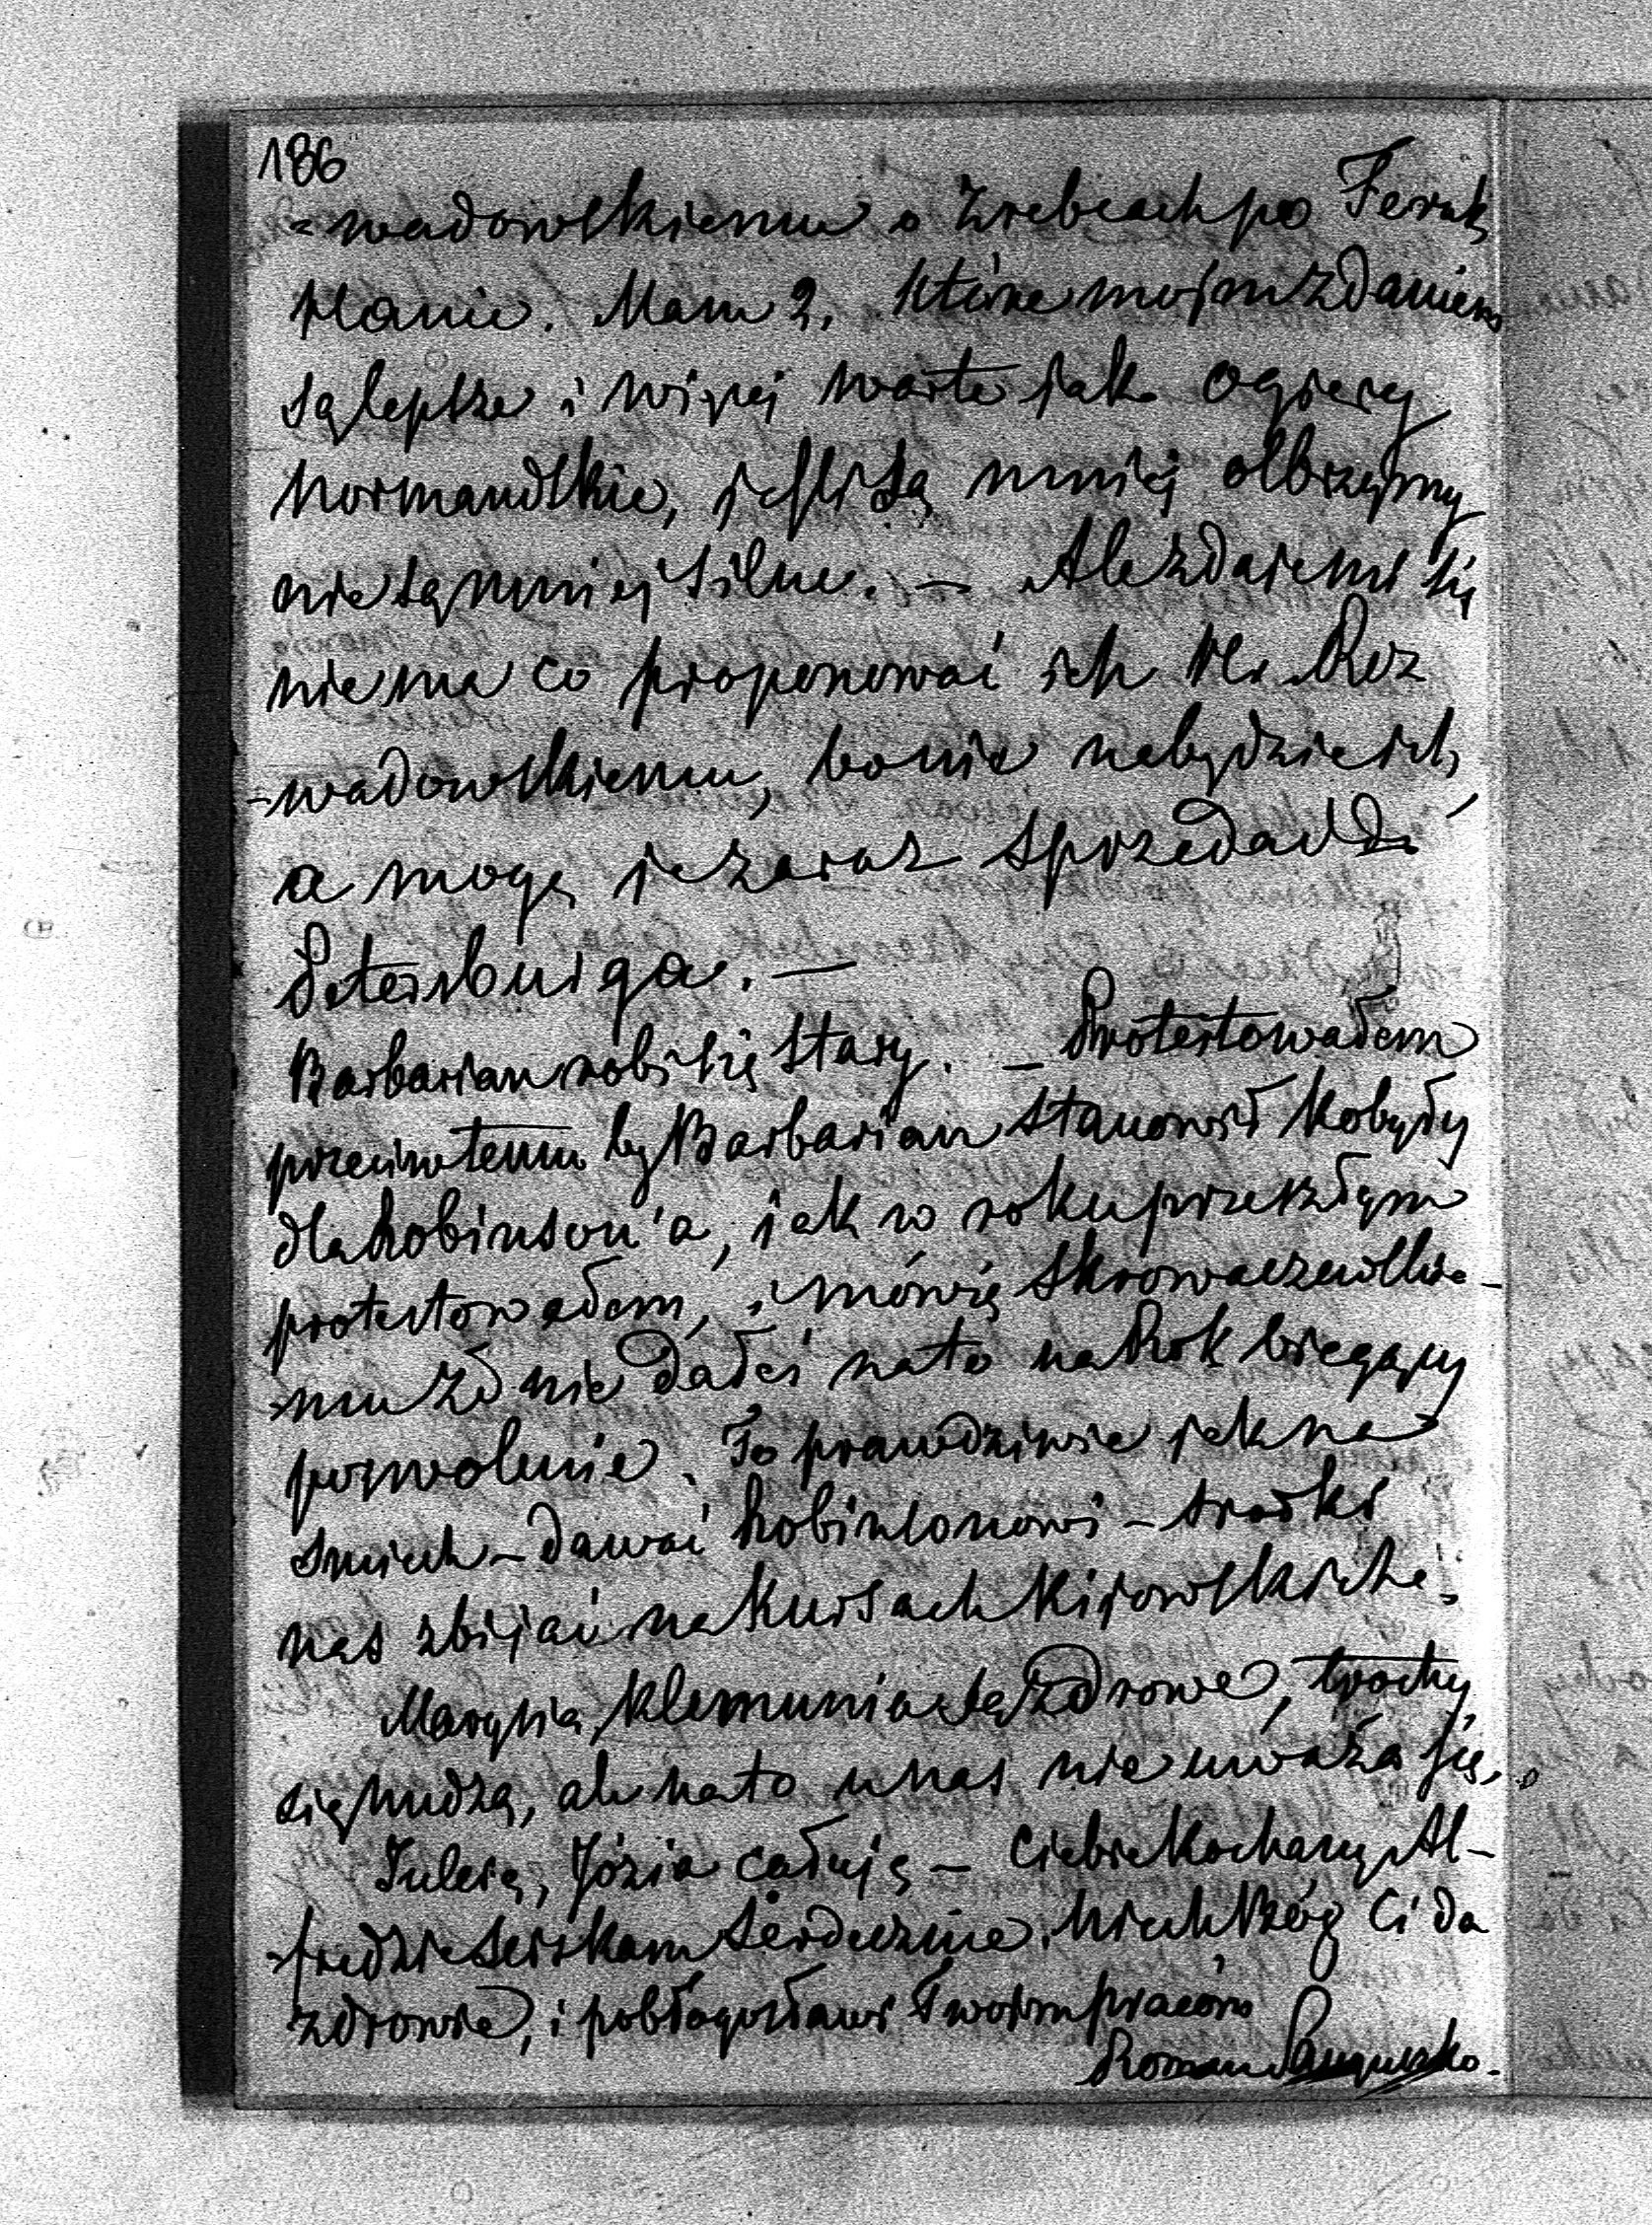 186
=wadowskiemu o źrebcach po Feruk
Hanie. Mam 2, które mojm zdaniem
są lepsze i więcej warte jak ogiery
Normandskie, jeśli są mniej olbrzymy
nie są mniej silne. — Ale zdaje mi się
niema co proponować ich Hr. Roz
-wadowskiemu, bo nie nabędzie ich,
a mogę je zaraz sprzedać do
Petersburga. —
Barbarian robi się stary. — Protestowałem
przeciw temu by Barbarian stanowił kobyły
dla Robinson'a, jak w roku przeszłym
protestowałem, i mówię Skrowaczewskie-
-mu że nie dałeś na to na Rok bieżący
pozwolenie. To prawdziwie jak na
śmiech – dawać Robinsonowi – środki
nas zbijać na kursach Kijowskiche.
Marysia, Klemunia są zdrowe, trochę
się nudzą, ale na to u nas nie uważa się.
Julcię, Józia całuję – Ciebie Kochany Al-
-fredzie ściskam serdecznie. Niech Bóg Ci da
zdrowie, i pobłogosławi Twoim pracom
Roman Sanguszko.